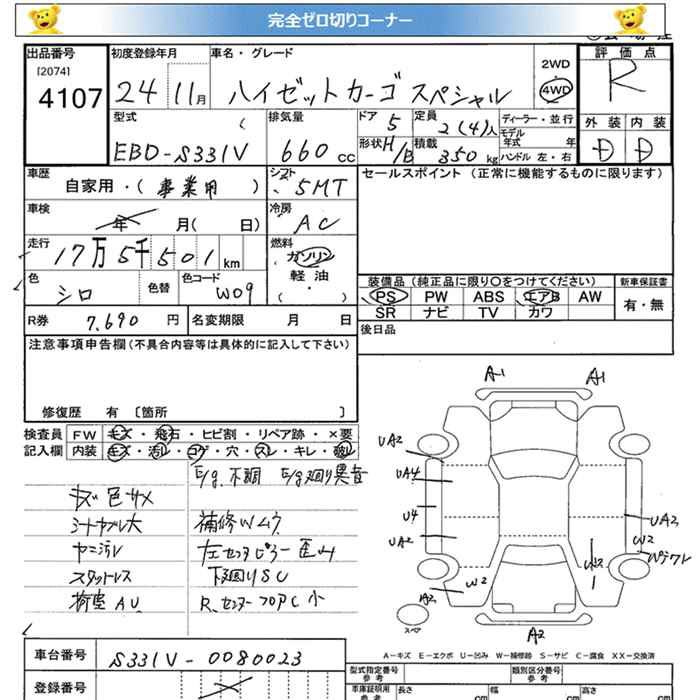 完全ゼロ切りコーナー
出品番号 初度登録年月 車名・グレード 2WD 評価点
[2074] 4107 24 11月 ハイゼットカーゴ スペシャル 4WD R
型式 排気量 ドア 5 定員 2(4)人 ディーラー・並行 外装 内装
モデル年式 年
EBD-S331V 660cc 形状 H/B 積載 350kg ハンドル 左・右 D D
車歴 シフト セールスポイント (正常に機能するものに限ります)
自家用・(事業用) 5MT
車検 冷房
年 月( 日) AC
走行 燃料
17万5千501km ガソリン
色 色替 色コード 軽油 装備品(純正品に限り○をつけてください) 新車保証書
シロ W09 (・) PS PW ABS エアB AW 有・無
SR ナビ TV カワ
R券 7,690円 名変期限 月 日 後日品
注意事項申告欄(不具合内容等は具体的に記入して下さい)
修復歴 有 [箇所 ]
検査員 FW キズ・飛石・ヒビ割・リペア跡・×要
記入欄 内装 キズ・汚レ・コゲ・穴・スレ・キレ・破レ
E/g.不調 E/g廻り異音
キズ色サメ
シートヤブレ大 補修Wムラ
ヤニ汚レ 左センタピラー歪み
スタットレス 下廻りSC
荷室AU R.センターフロアC小
A1 A1
UA2
UA4
U4
UA2
UA2
W2
W2
W2
A2
A2
スペア
A-キズ E-エクボ U-凹み W-補修跡 S-サビ C-腐食 XX-交換済
車台番号 S331V-0080023
型式指定番号 類別区分番号
参考 参考
登録番号
車庫証明用 長さ 幅 高さ
参考 cm cm cm